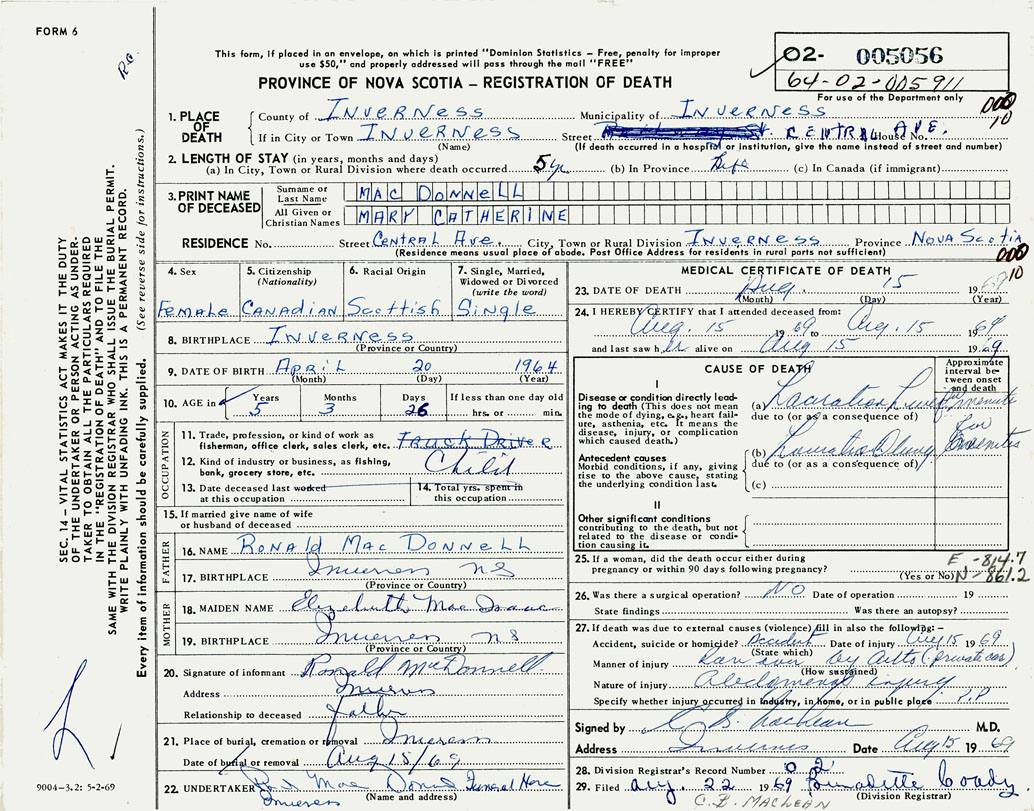 FORM 6
This form, if placed in an envelope, on which is printed "Dominion Statistics – Free, penalty for improper
use $50," and properly addressed will pass through the mail "FREE"
PROVINCE OF NOVA SCOTIA – REGISTRATION OF DEATH
02- 005056
64-02-005911
For use of the Department only
1. PLACE OF DEATH
County of INVERNESS Municipality of INVERNESS
If in City or Town INVERNESS Street CENTRAL AVE. House No.
(Name) (If death occurred in a hospital or institution, give the name instead of street and number)
000
10
2. LENGTH OF STAY (in years, months and days)
(a) In City, Town or Rural Division where death occurred 5 yr (b) In Province Life (c) In Canada (if immigrant)
3. PRINT NAME OF DECEASED
Surname or Last Name MAC DONNELL
All Given or Christian Names MARY CATHERINE
RESIDENCE No. Street CENTRAL AVE. City, Town or Rural Division INVERNESS Province NOVA SCOTIA
(Residence means usual place of abode. Post Office Address for residents in rural parts not sufficient)
000
10
4. Sex Female
5. Citizenship (Nationality) Canadian
6. Racial Origin Scottish
7. Single, Married, Widowed or Divorced (write the word) Single
8. BIRTHPLACE INVERNESS
(Province or Country)
9. DATE OF BIRTH April 20 1964
(Month) (Day) (Year)
10. AGE in Years 5 Months 3 Days 26 If less than one day old
hrs. or min.
OCCUPATION
11. Trade, profession, or kind of work as
fisherman, office clerk, sales clerk, etc. TRUCK DRIVER
12. Kind of industry or business, as fishing,
bank, grocery store, etc. Child
13. Date deceased last worked
at this occupation
14. Total yrs. spent in
this occupation
15. If married give name of wife
or husband of deceased
FATHER
16. NAME RONALD MAC DONNELL
17. BIRTHPLACE Inverness NS
(Province or Country)
MOTHER
18. MAIDEN NAME Elizabeth Mac Isaac
19. BIRTHPLACE Inverness NS
(Province or Country)
20. Signature of informant Ronald MacDonnell
Address Inverness
Relationship to deceased Father
21. Place of burial, cremation or removal Inverness
Date of burial or removal Aug 15/69
22. UNDERTAKER Funeral Home
(Name and address)
Inverness
MEDICAL CERTIFICATE OF DEATH
23. DATE OF DEATH Aug. 15 1969
(Month) (Day) (Year)
24. I HEREBY CERTIFY that I attended deceased from:
Aug. 15 1969 to Aug. 15 1969
and last saw her alive on Aug 15 1969
CAUSE OF DEATH
Approximate interval between onset and death
I
Disease or condition directly leading to death (This does not mean
the mode of dying, e.g., heart failure, asthenia, etc. It means the
disease, injury, or complication
which caused death.)
(a) Laceration Liver few minutes
due to (or as a consequence of)
Antecedent causes
Morbid conditions, if any, giving
rise to the above cause, stating
the underlying condition last.
(b) Laceration Lung few minutes
due to (or as a consequence of)
(c)
II
Other significant conditions
contributing to the death, but not
related to the disease or condition causing it.
25. If a woman, did the death occur either during
pregnancy or within 90 days following pregnancy?
(Yes or No)
E-814.7
N-861.2
26. Was there a surgical operation? NO Date of operation 19
State findings Was there an autopsy?
27. If death was due to external causes (violence) fill in also the following:–
Accident, suicide or homicide? Accident Date of injury Aug 15 1969
(State which)
Manner of injury Ran over by auto (private car)
(How sustained)
Nature of injury Abdomenal injury
Specify whether injury occurred in industry, in home, or in public place P.P
Signed by M.D.
Address Inverness Date Aug 15 1969
28. Division Registrar's Record Number 02
29. Filed Aug. 22 1969 Bernadette Coady
(Division Registrar)
C. B. MACLEAN
SEC. 14 – VITAL STATISTICS ACT MAKES IT THE DUTY
OF THE UNDERTAKER OR PERSON ACTING AS UNDERTAKER TO OBTAIN ALL THE PARTICULARS REQUIRED
IN THE "REGISTRATION OF DEATH" AND TO FILE THE
SAME WITH THE DIVISION REGISTRAR WHO SHALL ISSUE THE BURIAL PERMIT.
WRITE PLAINLY WITH UNFADING INK. THIS IS A PERMANENT RECORD.
Every item of information should be carefully supplied. (See reverse side for instructions.)
9004–3.2: 5-2-69